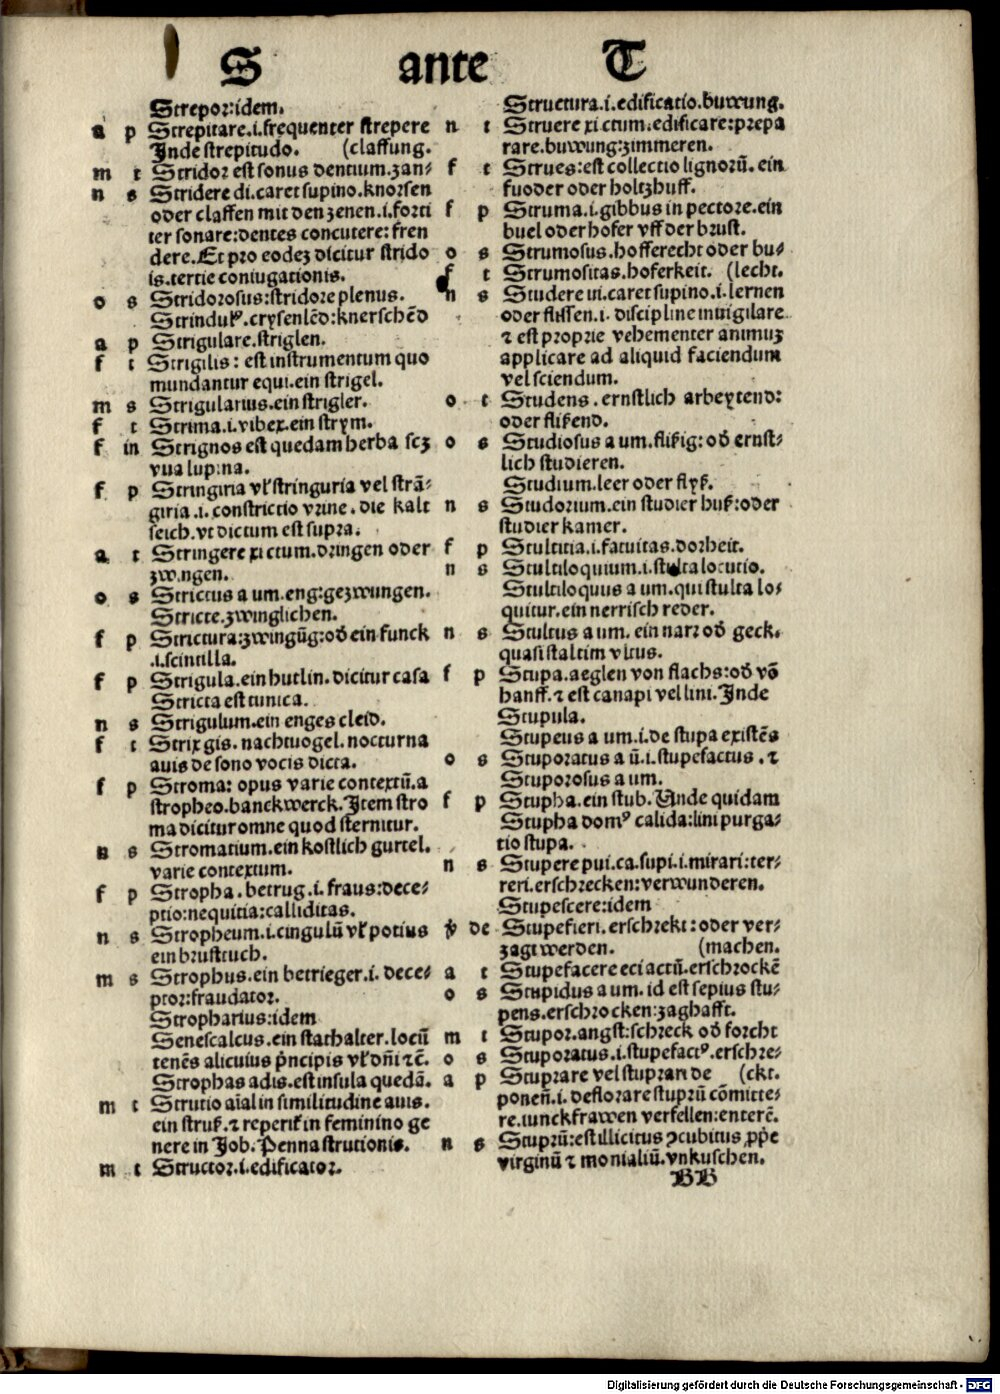 S ante T
Strepor:idem.
a p Strepitare.i.frequenter strepere
Inde strepitudo. (claffung.
m t Stridor est sonus dentium.zan-
n s Stridere di.caret supino.knorsen
oder claffen mit den zenen.i.forti
ter sonare:dentes concutere:fren
dere.Et pro eodeʒ dicitur strido
is.tertie coniugationis.
o s Stridorosus:stridore plenus.
Strindulꝰ.crysenlēd:knerschēd
a p Strigulare.striglen.
f t Strigilis: est instrumentum quo
mundantur equi.ein strigel.
m s Strigularius.ein strigler.
f t Strima.i.vibex.ein strym.
f in Strignos est quedam herba scʒ
vua lupina.
f p Stringiria vł stringuria vel strā-
giria.i.constrictio vrine.die kalt
seich.vt dictum est supra.
a t Stringere xi ctum.dringen oder
zwingen.
o s Strictus a um.eng:gezwungen.
Stricte.zwinglichen.
f p Strictura:zwingūg:od̕ ein funck
.i.scintilla.
f p Strigula.ein hutlin.dicitur casa
Stricta est tunica.
n s Strigulum.ein enges cleid.
f t Strix gis.nachtuogel.nocturna
auis de sono vocis dicta.
f p Stroma: opus varie contextū.a
stropheo.banckwerck.Item stro
ma dicitur omne quod sternitur.
n s Stromatium.ein kostlich gurtel.
varie contextum.
f p Stropha.betrug.i.fraus:dece-
ptio:nequitia:calliditas.
n s Stropheum.i.cingulū vł potius
ein brusttuch.
m s Strophus.ein betrieger.i.dece-
ptor:fraudator.
Stropharius:idem
Senescalcus.ein stathalter.locū
tenēs alicuius p̄ncipis vł dn̄i ⁊c̄.
Strophas adis.est insula quedā.
m t Strutio aīal in similitudine auis.
ein struß.⁊ reperit̕ in feminino ge
nere in Job.Penna strutionis.
m t Structor.i.edificator.
Structura.i.edificatio.buwung.
n t Struere xi ctum.edificare:prepa
rare.buwung:zimmeren.
f t Strues:est collectio lignorū.ein
fuoder oder holtzhuff.
f p Struma.i.gibbus in pectore.ein
buel oder hofer vff der brust.
o s Strumosus.hofferecht oder bu-
f t Strumositas.hoferkeit. (lecht.
n s Studere ui.caret supino.i.lernen
oder flissen.i. discipline inuigilare
⁊ est proprie vehementer animuʒ
applicare ad aliquid faciendum
vel sciendum.
o t Studens.ernstlich arbeytend:
oder flißend.
o s Studiosus a um.flißig:od̕ ernst-
lich studieren.
Studium.leer oder flyß.
n s Studorium.ein studier huß:oder
studier kamer.
f p Stultitia.i.fatuitas.dorheit.
n s Stultiloquium.i.stulta locutio.
Stultiloquus a um.qui stulta lo-
quitur.ein nerrisch reder.
n s Stultus a um. ein narr od̕ geck.
quasi staltim vltus.
f p Stupa.aeglen von flachs:od̕ vō
hanff.⁊ est canapi vel lini.Inde
Stupula.
Stupeus a um.i.de stupa existēs
o s Stuporatus a ū.i.stupefactus.⁊
Stuporosus a um.
f p Stupha.ein stub.Unde quidam
Stupha domꝰ calida:lini purga-
tio stupa.
n s Stupere pui.ca.supi.i.mirari:ter-
reri.erschrecken:verwunderen.
Stupescere:idem
p̄ de Stupefieri.erschrekt:oder ver-
zagt werden. (machen.
a t Stupefacere eci actū.erschrockē
o s Stupidus a um. id est sepius stu-
pens.erschrocken:zaghafft.
m t Stupor.angst:schreck od̕ forcht
o s Stuporatus.i.stupefactꝰ.erschre-
a p Stuprare vel stuprari de (ckt.
ponen̄.i.deflorare stuprū cōmitte-
re.iunckfrawen verfellen:enterē.
n s Stuprū:est illicitus ꝯcubitus ꝓp̄e
virginū ⁊ monialiū.vnkuschen.
BB
Digitalisierung gefördert durch die Deutsche Forschungsgemeinschaft - DFG